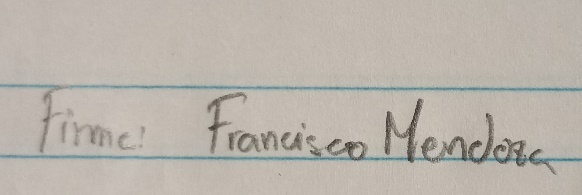 Firma: Francisco Mendoza